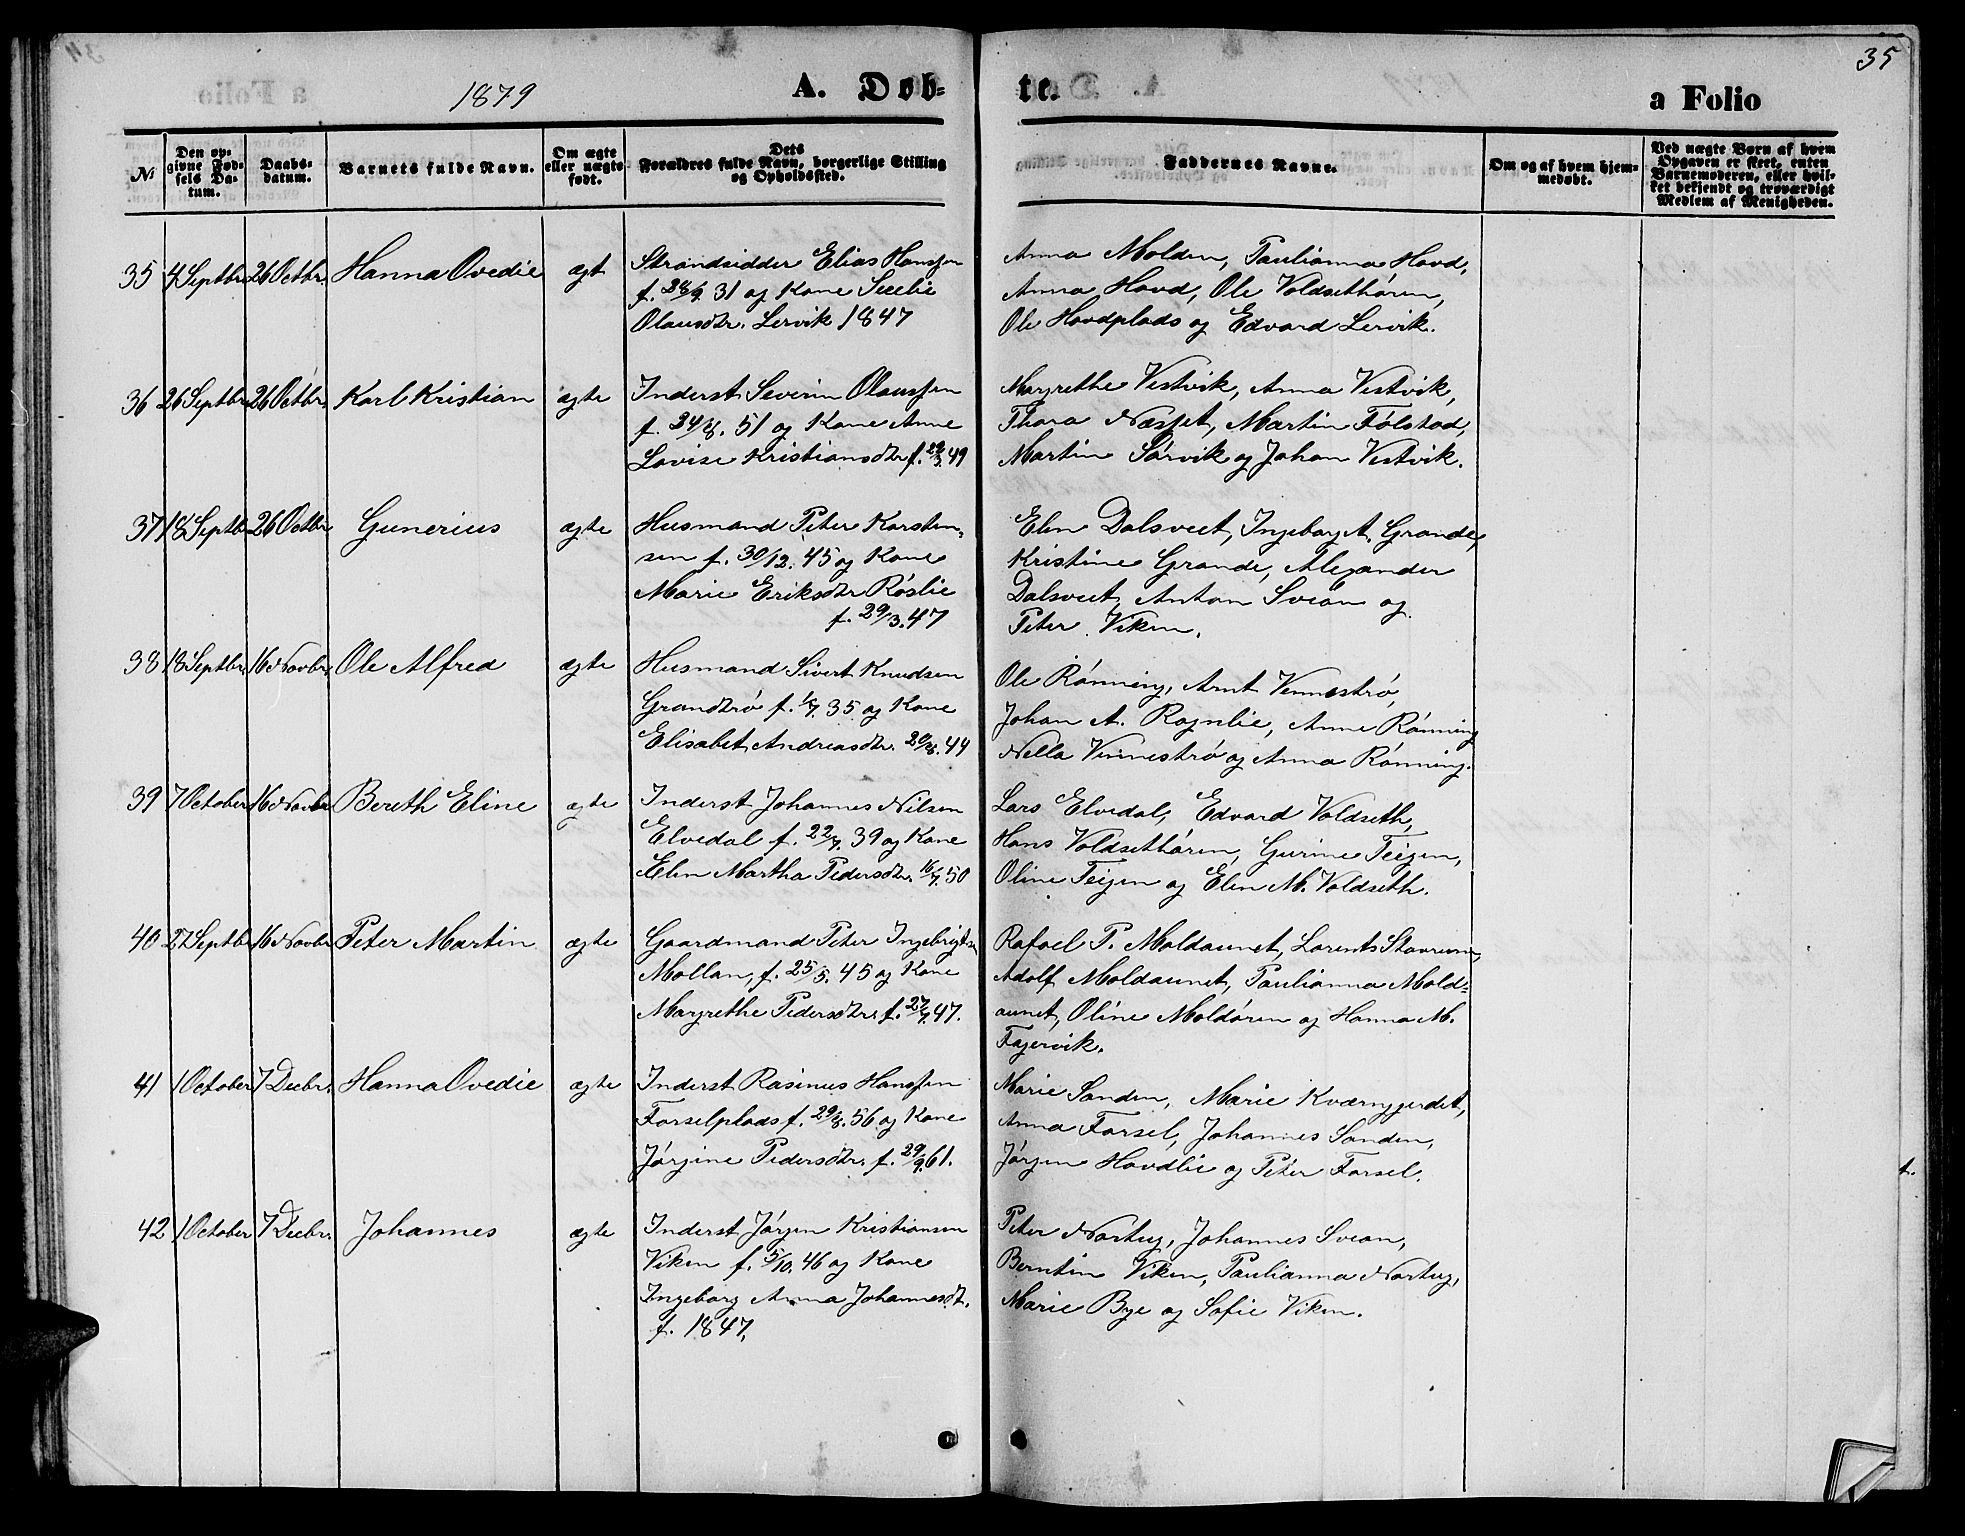 35
1879 A. Døb- te. a Folio
№ Den op-givne Fød-sels Da-tum. Daabs-datum. Barnets fulde Navn. Om ægte eller uægte født. Dets Forældres fulde Navn, borgerlige Stilling og Opholdssted. Faddernes Navne. Om og af hvem hjem-medøbt. Ved uægte Børn af hvem Opgaven er skeet, enten Barnemoderen, eller hvil-ket bekjendt og troværdigt Medlem af Menigheden.
35 4 Septbr 26 Octbr. Hanna Ovedie ægt Strandsidder Elias Hanssen
f. 28/9. 31 og Kone Secelie
Olausdtr. Lervik 1847
Anna Molden, Paulianna Hovd,
Anna Hovd, Ole Voldsethøren,
Ole Hovdplads og Edvard Lervik.
36 26 Septbr 26 Octbr. Karl Kristian ægte Inderst Severin Olaussen
f. 24/8. 51 og Kone Anne
Lovise Kristiansdtr f. 29/3. 49
Margrethe Vestvik, Anna Vestvik,
Thora Næsset, Martin Følstad,
Martin Sørvik og Johan Vestvik.
37 18 Septbr 26 Octbr Gunerius ægte Husmand Peter Karsten-
sen f. 30/12. 45 og Kone
Marie Eriksdtr Røslie
f. 29/3. 47
Elen Dalsveet, Ingeborg A. Grande,
Kristine Grande, Alexander
Dalsveet, Anton Svean og
Peter Viken.
38 18 Septbr. 16 Novbr. Ole Alfred ægte Husmand Sivert Knudsen
Grandtrø f. 1/7. 35 og Kone
Elisabet Andreasdtr. 20/8. 44
Ole Rønning, Arnt Vennestrø,
Johan A. Ragnlie, Anne Rønning
Nella Vinnestrø og Anna Rønning.
39 7 October 16 Novbr Bereth Eline ægte Inderst Johannes Nilsen
Elvedal f. 22/7. 39 og Kone
Elen Martha Pedersdtr. 16/7. 50
Lars Elvedal, Edvard Voldseth,
Hans Voldsethøren, Gurine Teigen,
Oline Teigen og Elen M. Voldseth.
40 27 Septbr 16 Novbr Peter Martin ægte Gaardmand Peter Ingebrigtsn
Mollan, f. 25/5. 45 og Kone
Margrethe Pedersdtr. f. 27/7. 47.
Rafael P. Moldaunet, Lorents Stavrum,
Adolf Moldaunet, Paulianna Mold-
aunet, Oline Moldøren og Hanna M.
Fagervik.
41 1 October 7 Decbr. Hanna Ovedie ægte Inderst Rasinus Hanssen
Forselplads f. 29/8. 56 og Kone
Jørgine Pedersdtr. f. 29/9. 61.
Marie Sanden, Marie Kværnggerdet,
Anna Forsel, Johannes Sanden,
Jørgen Hovdlie og Peter Forsel.
42 1 October 7 Decbr. Johannes ægte Inderst Jørgen Kristiansen
Viken f. 5/10. 46 og Kone
Ingeborg Anna Johannesdt.
f. 1847.
Peter Nortug, Johannes Svean,
Berntin Viken, Paulianna Nortug,
Marie Bye og Sofie Viken.